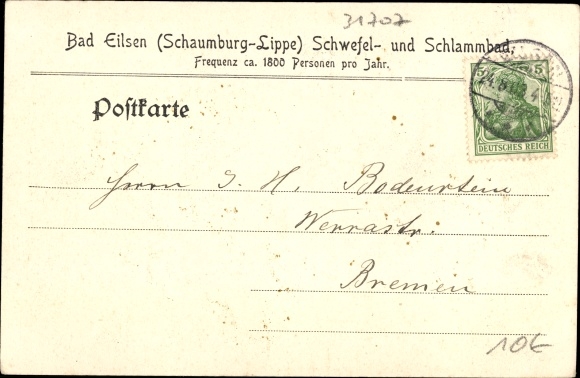 31707
Bad Eilsen (Schaumburg-Lippe) Schwefel- und Schlammbad,
Frequenz ca. 1800 Personen pro Jahr.
5
Postkarte
DEUTSCHES REICH
Herrn J. H. Bodenstein
Werrastr.
Bremen
10€